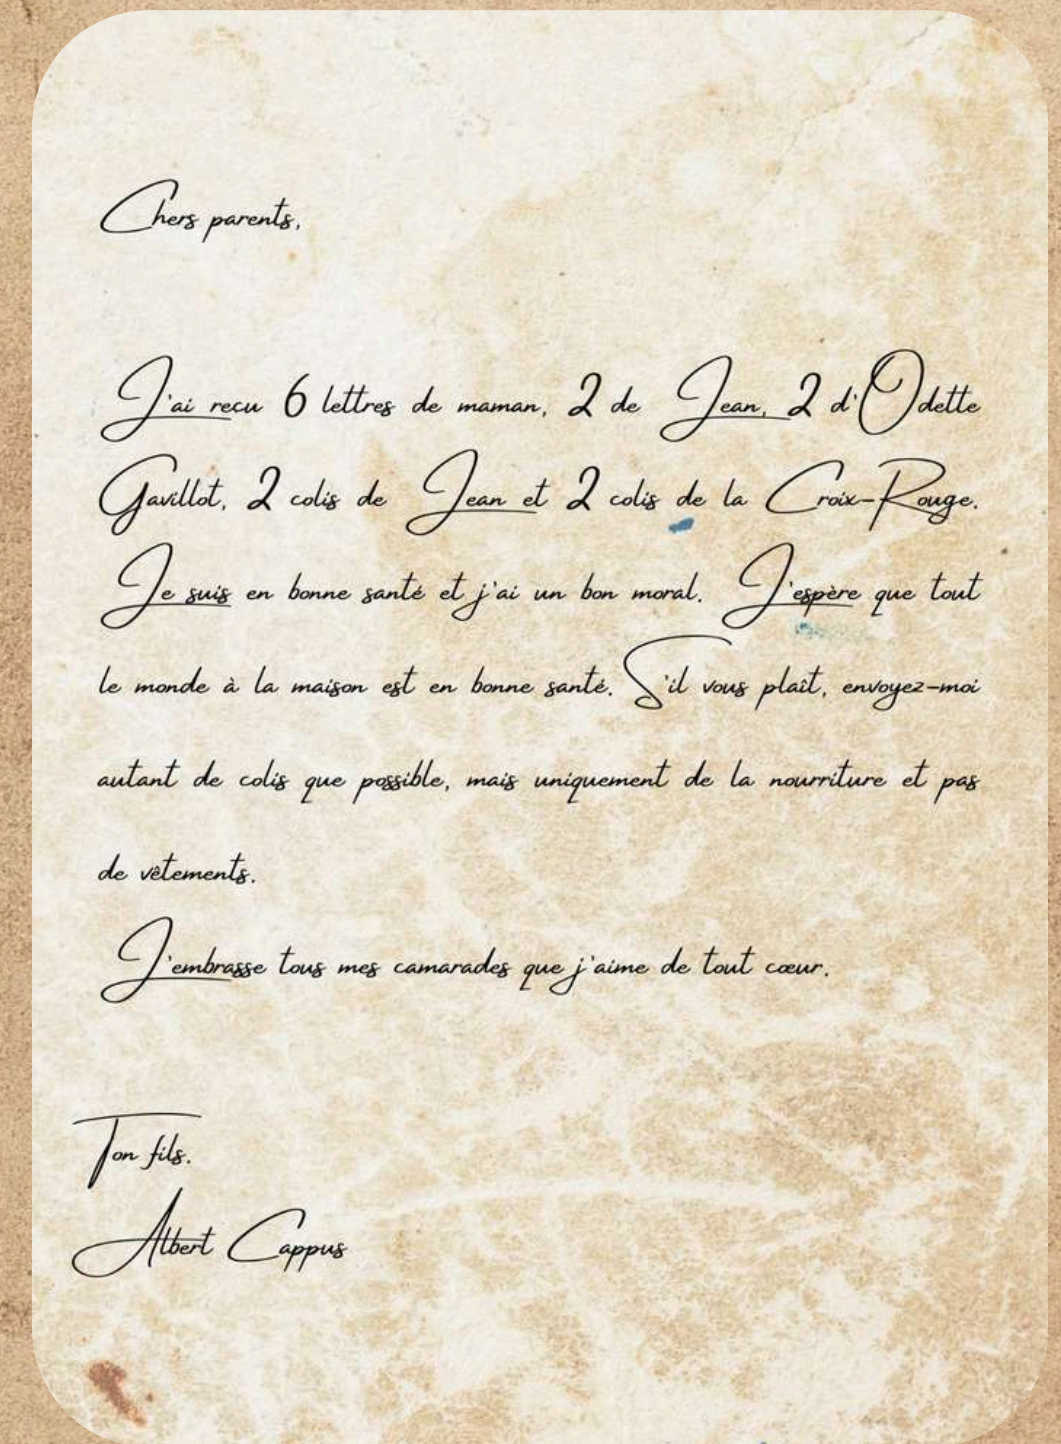 Chers parents,
J'ai recu 6 lettres de maman, 2 de Jean, 2 d'Odette
Gavillot, 2 colis de Jean et 2 colis de la Croix-Rouge.
Je suis en bonne santé et j'ai un bon moral. J'espère que tout
le monde à la maison est en bonne santé. S'il vous plaît, envoyez-moi
autant de colis que possible, mais uniquement de la nourriture et pas
de vêtements.
J'embrasse tous mes camarades que j'aime de tout cœur.
Ton fils.
Albert Cappus